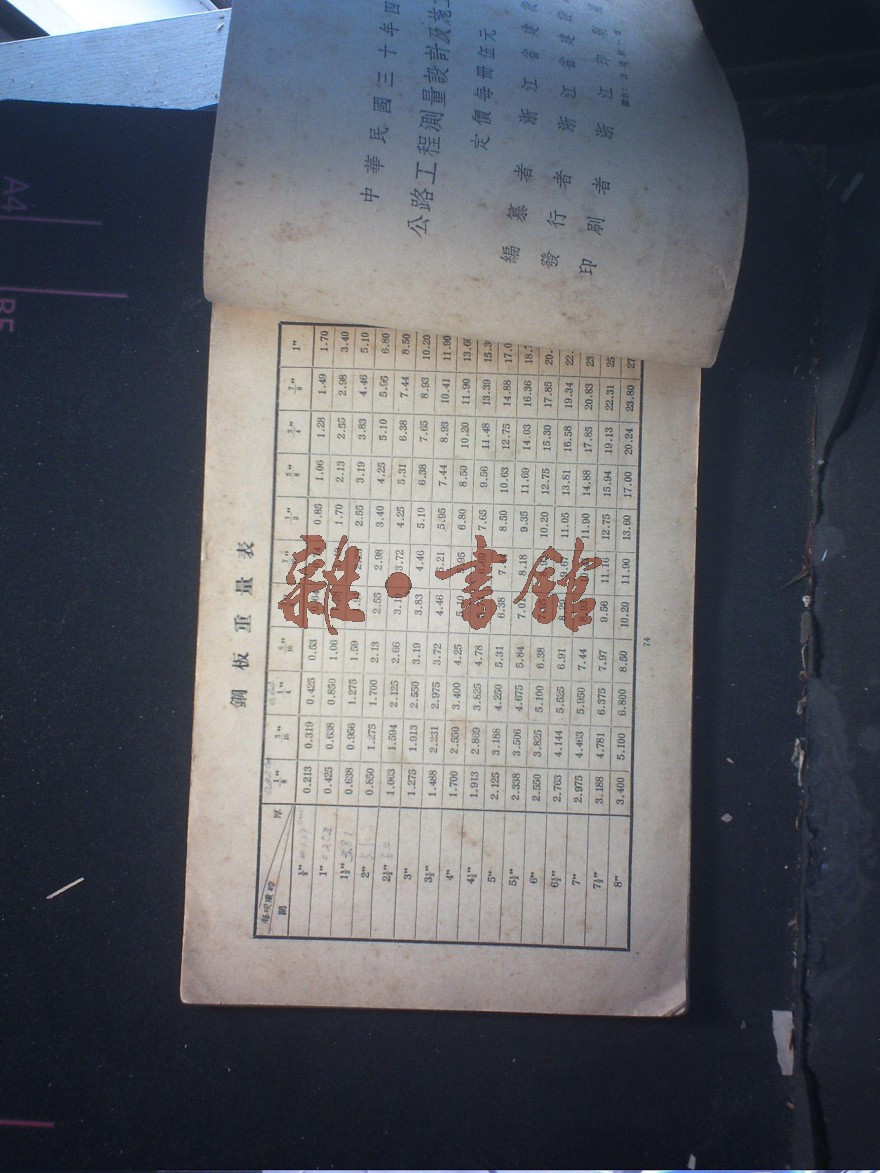 中華民國三十年四
公路工程測量設計及施工
定價每冊伍元
編纂者 浙江省建設
發行者 浙江省建設
印刷者 浙江印刷
鋼板重量表
厚 1/8" 3/16" 1/4" 5/16" 1/2" 5/8" 3/4" 7/8" 1"
闊
1/2" 0.213 0.319 0.425 0.53 0.85 1.06 1.28 1.49 1.70
1" 0.425 0.638 0.850 1.06 1.70 2.13 2.55 2.98 3.40
1½" 0.638 0.956 1.275 1.59 2.55 3.19 3.83 4.46 5.10
2" 0.850 1.275 1.700 2.13 2.55 2.98 3.40 4.25 5.10 5.95 6.80
2½" 1.063 1.594 2.125 2.66 3.72 4.25 5.31 6.38 7.44 8.50
3" 1.275 1.913 2.550 3.19 3.83 4.46 5.10 6.38 7.65 8.93 10.20
3½" 1.488 2.231 2.975 3.72 4.46 5.21 5.95 7.44 8.93 10.41 11.90
4" 1.700 2.550 3.400 4.25 6.80 8.50 10.20 11.90 13.60
4½" 1.913 2.869 3.825 4.78 7.65 9.56 11.48 13.39 15.3
5" 2.125 3.188 4.250 5.31 6.38 8.50 10.63 12.75 14.88 17.0
5½" 2.338 3.506 4.675 5.84 7.01 8.18 9.35 11.69 14.03 16.36 18.7
6" 2.550 3.825 5.100 6.38 10.20 12.75 15.30 17.85 20.
6½" 2.763 4.144 5.525 6.91 11.05 13.81 16.58 19.34 22.
7" 2.975 4.463 5.950 7.44 11.90 14.88 17.85 20.83 23
7½" 3.188 4.781 6.375 7.97 9.56 11.16 12.75 15.94 19.13 22.31 25
8" 3.400 5.100 6.800 8.50 10.20 11.90 13.60 17.00 20.24 23.80 27
74
雜·書館
A4
B5